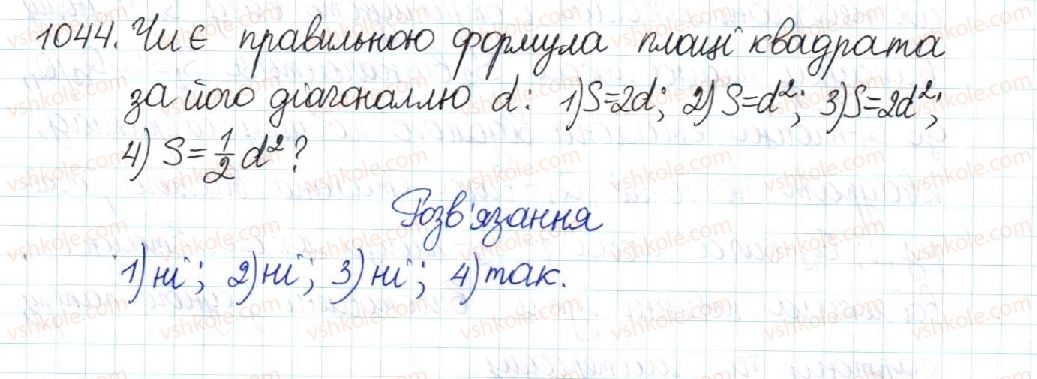 1044. Чи є правильною формула площі квадрата
за його діагоналлю d: 1) S=2d; 2) S=d²; 3) S=2d²;
4) S=1/2 d²?
Розв'язання
1) ні; 2) ні; 3) ні; 4) так.